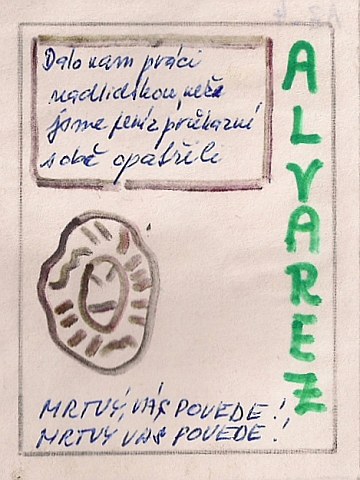 Dalo nám práci
nadlidskou, než
jsme peníz průkazní
sobě opatřili
ALVAREZ
MRTVÝ VÁS POVEDE!
MRTVÝ VAS POVEDE!